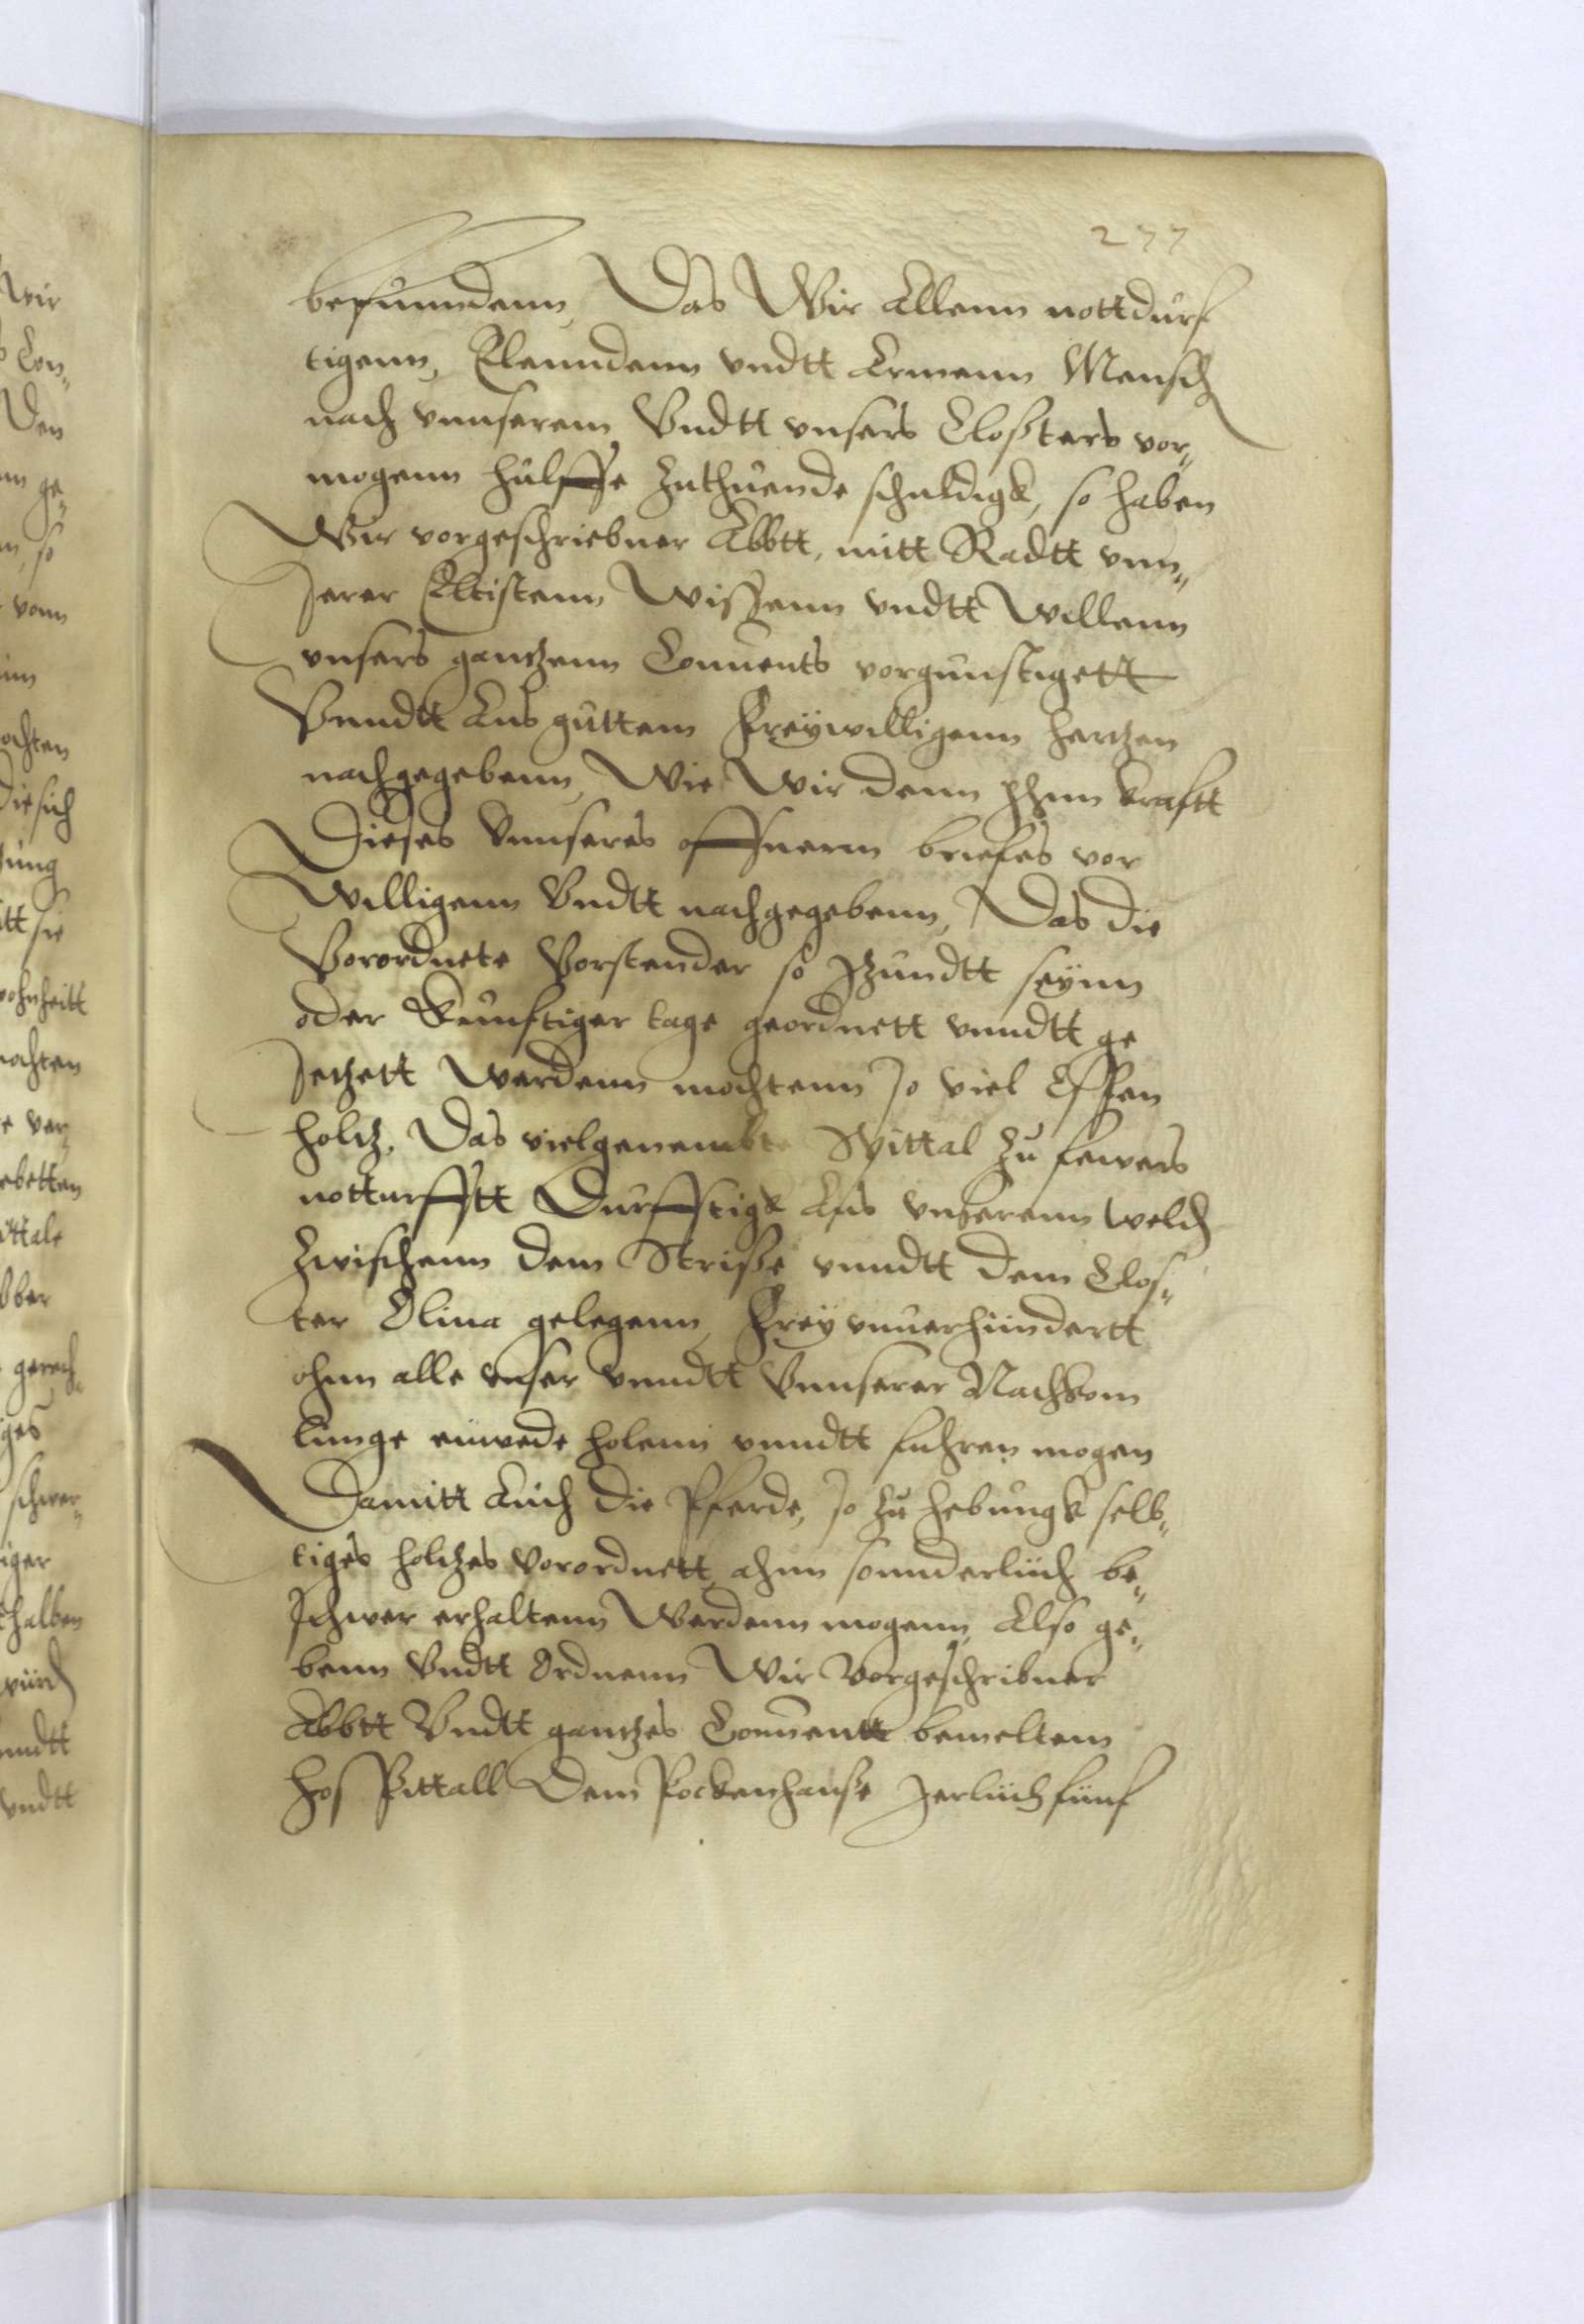 277
befunndenn, Das Wir Allenn nottdurf
tigenn, Elenndenn vndtt Armenn Mensch
nach vnnserem Vndtt vnsers Closters vor„
mogenn hulffe zuthuende schuldigk, so haben
Wir vorgeschriebner Abbtt, mitt Radtt vnn„
serer Eltistenn Wissenn vndtt Willenn
vnsers gantzenn Conuents vorgunstigett
Vnndtt Aus guttem Freywilligenn hertzen
nachgegebenn, Wie Wir denn jhnn krafft
Dieses Vnnseres offnenn briefes vor
Willigenn Vndtt nachgegebenn, Das die
Vorordnete Vorstender so jtzundtt seynn
oder Kunftiger tage geordnett vnndtt ge
setzett Werdenn mochtenn so viel Essen
holtz, Das vielgenembte Spittal zu fewers
notturfftt Durfftigk Aus vnserenn weld
Zwischenn dem Strisse vnndtt dem Clos„
ter Oliua gelegenn, Frey vnuerhiindertt
ohnn alle vnser vnndtt Vnnserer Nachkom
linge einrede holenn vnndtt fuhren mogen
Damitt Auch die Pferde, so zu hebungk selb„
tiges holtzes Vorordnett, ahnn sonnderlich be„
schwer erhaltenn Werdenn mogenn, Also ge„
benn Vndtt Ordnenn Wir Vorgeschribner
Abbtt Vndtt gantzes Conuentt bemeltem
hosPittall Dem Pockenhause Jerlich funf